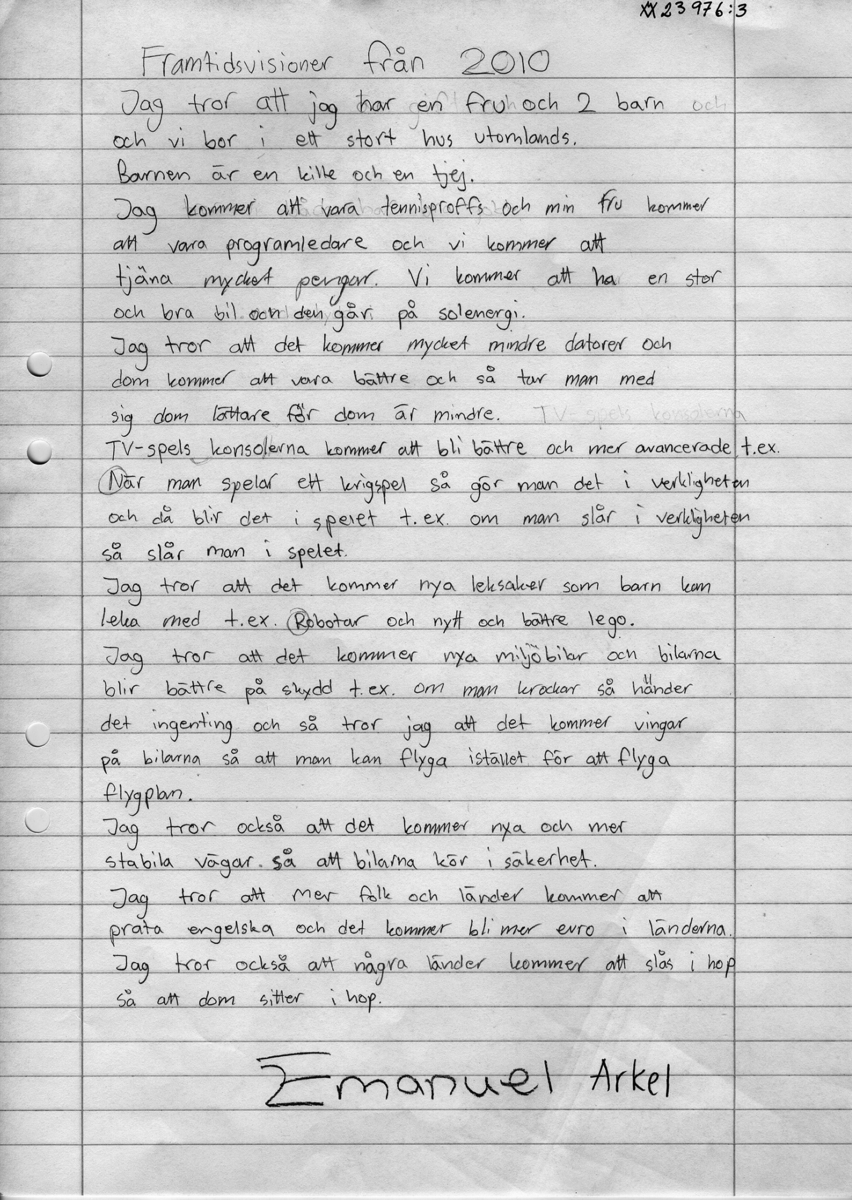 XX23976:3
Framtidsvisioner från 2010
Jag tror att jag har en fru och 2 barn
och vi bor i ett stort hus utomlands.
Barnen är en kille och en tjej.
Jag kommer att vara tennisproffs och min fru kommer
att vara programledare och vi kommer att
tjäna mycket pengar. Vi kommer att ha en stor
och bra bil och den går på solenergi.
Jag tror att det kommer mycket mindre datorer och
dom kommer att vara bättre och så tar man med
sig dom lättare för dom är mindre. TV-spels konsolerna
TV-spels konsolerna kommer att bli bättre och mer avancerade t.ex.
När man spelar ett krigspel så gör man det i verkligheten
och då blir det i spelet t.ex. om man slår i verkligheten
så slår man i spelet.
Jag tror att det kommer nya leksaker som barn kan
leka med t.ex. Robotar och nytt och bättre lego.
Jag tror att det kommer nya miljöbilar och bilarna
blir bättre på skydd t.ex. om man krockar så händer
det ingenting och så tror jag att det kommer vingar
på bilarna så att man kan flyga istället för att flyga
flygplan.
Jag tror också att det kommer nya och mer
stabila vägar. så att bilarna kör i säkerhet.
Jag tror att mer folk och länder kommer att
prata engelska och det kommer bli mer euro i länderna.
Jag tror också att några länder kommer att slås i hop
så att dom sitter i hop.
Emanuel Arkel